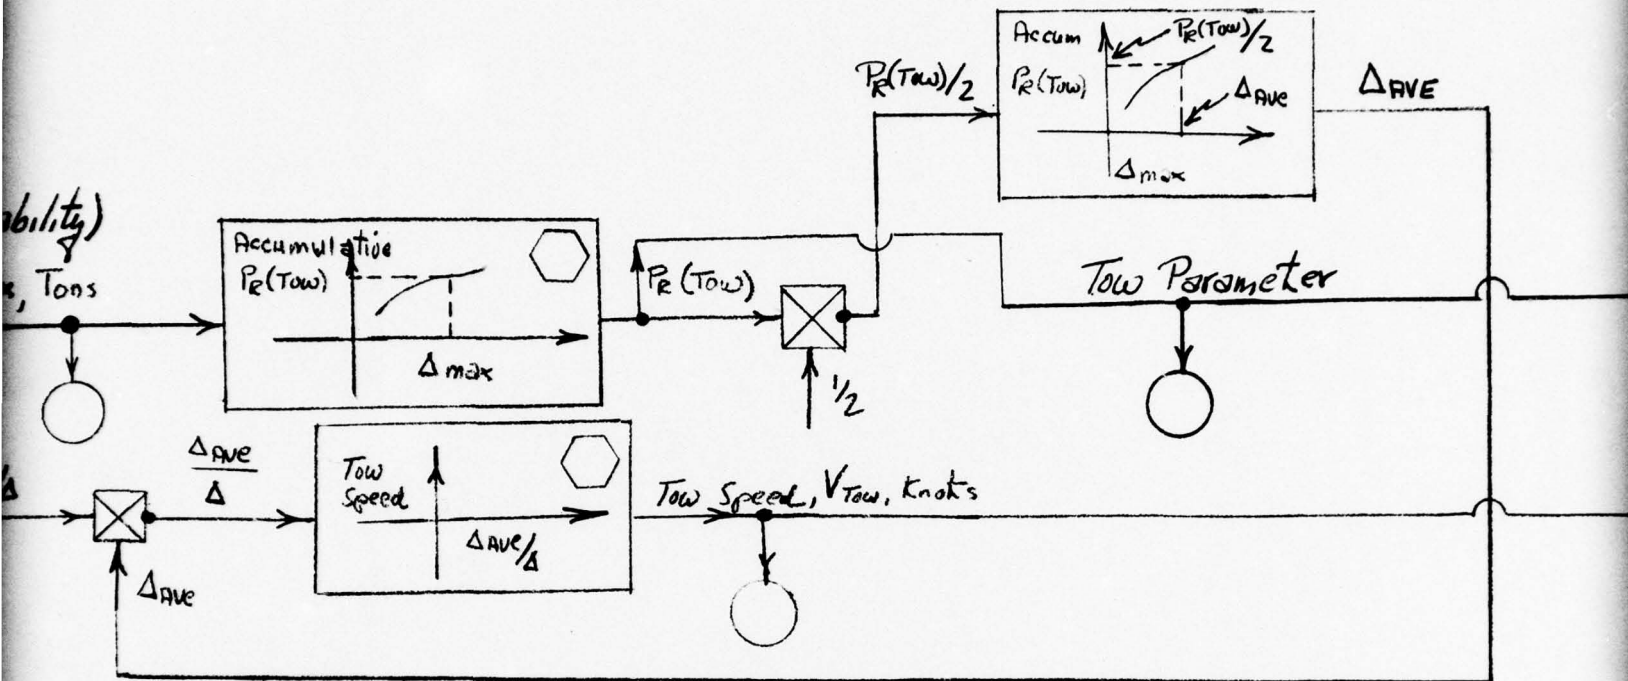 Accum
P_R(Tow)/2
P_R(Tow)
Δ_Ave
Δ_max
P_R(Tow)/2
Δ_AVE
Tons
Accumulative
P_R(Tow)
Δ_max
P_R(Tow)
1/2
Tow Parameter
Δ_AVE
Δ
Tow
Speed
Δ_AVE/Δ
Tow Speed, V_Tow, Knots
Δ_AVe